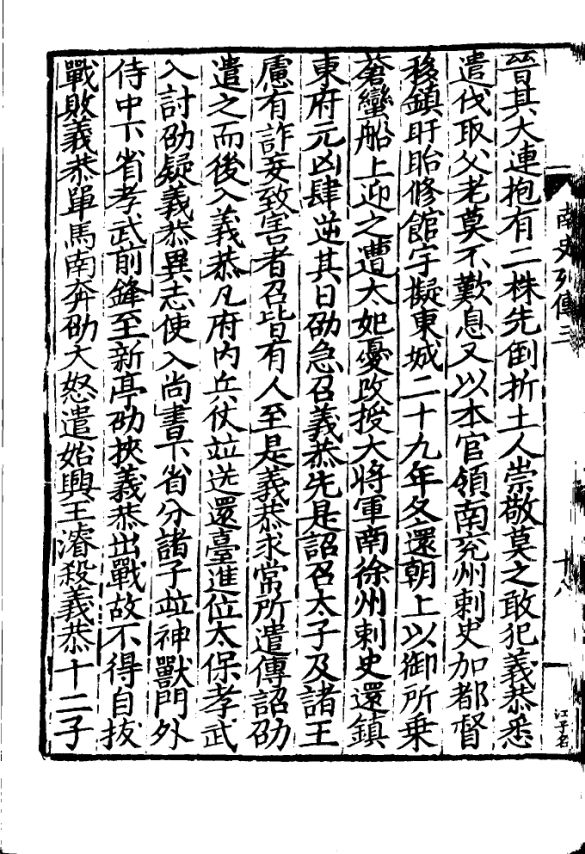 晉其大連抱有二株先倒折土人崇敬莫之敢犯義恭悉
遣伐取父老莫不歎息又以本官領南兖州刺史加都督
移鎮盱眙修館宇擬東城二十九年冬還朝上以御所乗
蒼鷹船上迎之遭太妃憂改授大將軍南徐州刺史還鎮
東府元凶肆逆其日劭急召義恭先是詔召太子及諸王
慮有詐妄致害者召皆有人至是義恭求常所遣傳詔劭
遣之而後入義恭凡府内兵仗並送還臺進位太保孝武
入討劭疑義恭異志使入尚書下省分諸子並神獸門外
侍中下省孝武前鋒至新亭劭挾義恭出戰故不得自拔
戰敗義恭單馬南奔劭大怒遣始興王濬殺義恭十二子
南史列傳三
十八